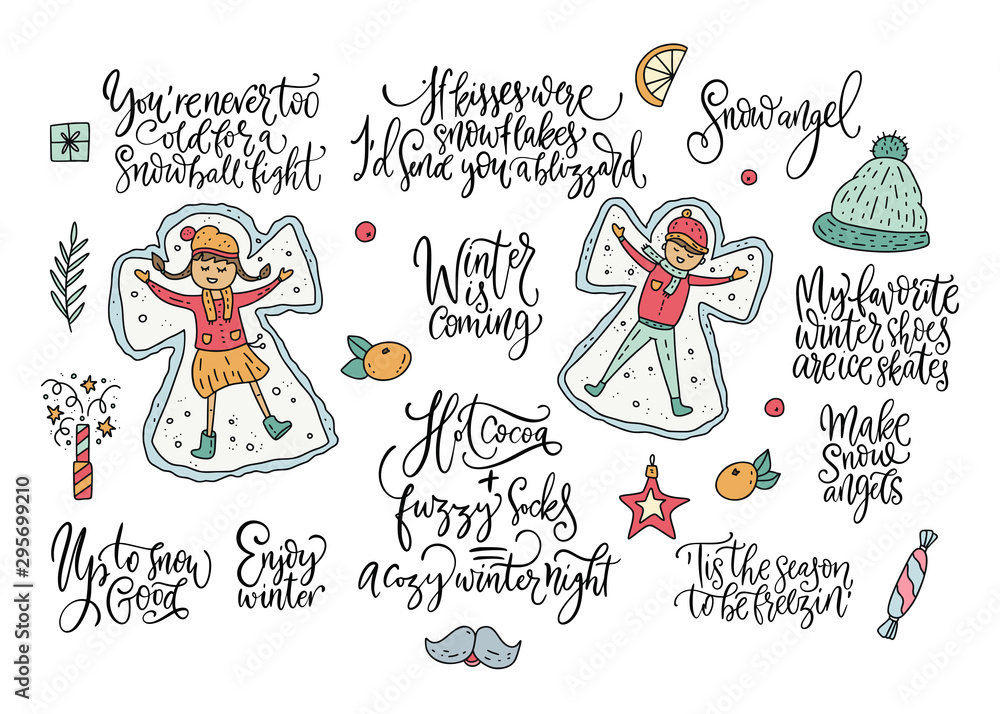 You're never too
old for a
Snowball fight
If kisses were
snowflakes
I'd Send you a blizzard
Snow angel
Winter
is
coming
My favorite
winter shoes
are ice skates
Hot Cocoa
+
fuzzy Socks
=
a cozy winter night
Make
Snow
angels
Up to snow
Good
Enjoy
winter
'Tis the season
to be freezin'
Adobe Stock | #295699210